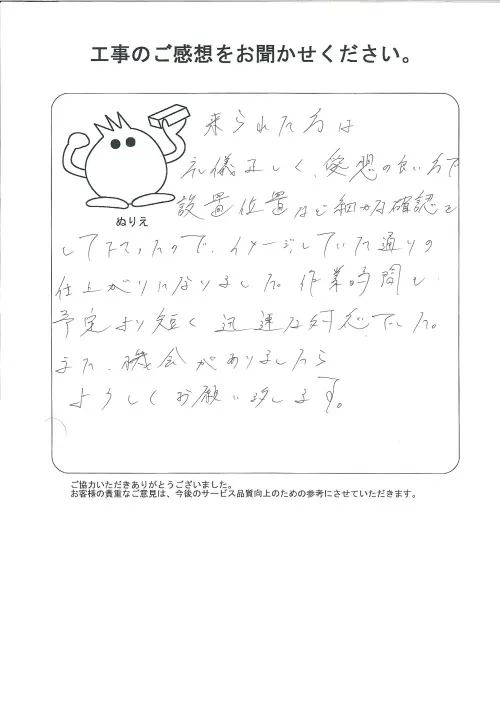 工事のご感想をお聞かせください。
来られた方は
礼儀正しく、愛想の良い方で
ぬりえ
設置位置など細かな確認を
して下さったので、イメージしていた通りの
仕上がりになりました。作業時間も
予定より短く迅速な対応でした。
また、機会がありましたら
よろしくお願い致します。
ご協力いただきありがとうございました。
お客様の貴重なご意見は、今後のサービス品質向上のための参考にさせていただきます。